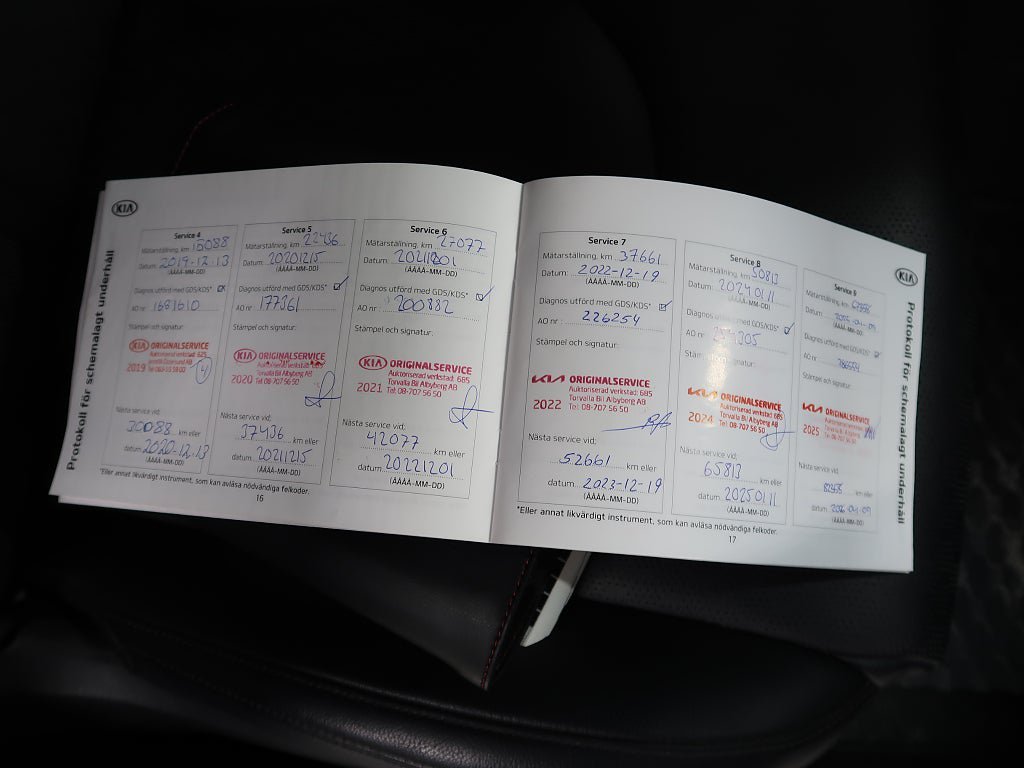 KIA
Protokoll för schemalagt underhåll
Service 4
Mätarställning, km 15088
Datum: 2019-12-13
(ÅÅÅÅ-MM-DD)
Diagnos utförd med GDS/KDS*
AO nr 1681610
Stämpel och signatur:
KIA ORIGINALSERVICE
Auktoriserad verkstad: 625
2019
4
Nästa service vid:
30088 km eller
datum 2020-12-13
(ÅÅÅÅ-MM-DD)
Service 5
Mätarställning, km 22436
Datum: 20201215
(ÅÅÅÅ-MM-DD)
Diagnos utförd med GDS/KDS*
AO nr 177361
Stämpel och signatur:
KIA ORIGINALSERVICE
Auktoriserad verkstad: 685
Torvalla Bil Albyberg AB
2020 Tel: 08-707 56 50
Nästa service vid;
37436 km eller
datum 20211215
(ÅÅÅÅ-MM-DD)
Service 6
Mätarställning, km 27077
Datum: 20211201
(ÅÅÅÅ-MM-DD)
Diagnos utförd med GDS/KDS*
AO nr 200882
Stämpel och signatur:
KIA ORIGINALSERVICE
Auktoriserad verkstad: 685
Torvalla Bil Albyberg AB
2021 Tel: 08-707 56 50
Nästa service vid;
42077 km eller
datum 20221201
(ÅÅÅÅ-MM-DD)
*Eller annat likvärdigt instrument, som kan avläsa nödvändiga felkoder.
16
Service 7
Mätarställning, km 37661
Datum: 2022-12-19
(ÅÅÅÅ-MM-DD)
Diagnos utförd med GDS/KDS*
AO nr 226254
Stämpel och signatur:
KIA ORIGINALSERVICE
Auktoriserad verkstad: 685
Torvalla Bil Albyberg AB
2022 Tel: 08-707 56 50
Nästa service vid;
52661 km eller
datum 2023-12-19
(ÅÅÅÅ-MM-DD)
Service 8
Mätarställning, km 50813
Datum: 20240111
(ÅÅÅÅ-MM-DD)
Diagnos utförd med GDS/KDS*
AO nr
Stämpel och signatur:
KIA ORIGINALSERVICE
Auktoriserad verkstad: 685
Torvalla Bil Albyberg AB
2024 Tel: 08-707 56 50
Nästa service vid;
65813 km eller
datum 20250111
(ÅÅÅÅ-MM-DD)
Service 9
Mätarställning, km
Datum:
(ÅÅÅÅ-MM-DD)
Diagnos utförd med GDS/KDS*
AO nr
Stämpel och signatur:
KIA ORIGINALSERVICE
Auktoriserad verkstad: 685
Torvalla Bil Albyberg
2025 Tel: 08-707 56 50
Nästa service vid
km eller
datum
(ÅÅÅÅ-MM-DD)
*Eller annat likvärdigt instrument, som kan avläsa nödvändiga felkoder.
17
KIA
Protokoll för schemalagt underhåll